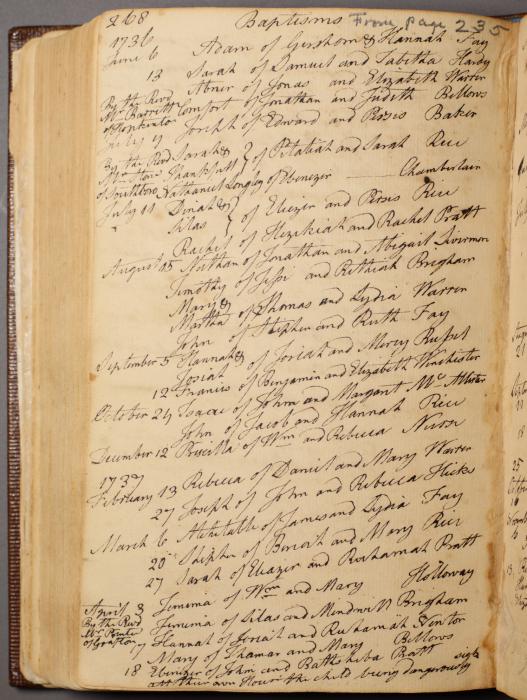 268 Baptisms From page 235
1736
June 6 Adam of Gershom & Hannah Fay
13 Sarah of Samuel and Tabitha Hardy
Abner of Jonas and Elizabeth Warren
By the Revd Mr Barrett of Hopkinton Comfort of Jonathan and Judith Bellows
Joseph of Edward and Persis Baker
By the Revd Mr Stone of Southboro Sarah & Frankfutt } of Pelatiah and Sarah Rice
Nathanel Longley of Ebenezer Chamberlain
July 11 Dinah & Silas } of Eliezer and Persis Rice
Rachel of Hezekiah and Rachel Pratt
August 15 Nathan of Jonathan and Abigail Livermore
Timothy of Jessi and Bethiah Brigham
Mary & Martha of Thomas and Lydia Warren
John of Stephen and Ruth Fay
September 5 Hannah & Josiah of Josiah and Mercy Russel
12 Francis of Benjamin and Elizabeth Winchester
October 24 Isaac of John and Margaret Mc Allister
John of Jacob and Hannah Rice
December 12 Priscilla of Wm and Rebecca Nurse
1737
February 13 Rebecca of Daniel and Mary Warren
27 Joseph of John and Rebecca Hicks
March 6 Mehitable of James and Lydia Fay
20 Stephen of Beriah and Mary Rice
27 Sarah of Eleazer and Ruhamah Pratt
April 3 Jemima of Wm and Mary Holloway
By the Revd Mr Prentice of Grafton Jemima of Silas and Mindwell Brigham
7 Hannah of Josiah and Ruhamah Newton
Mary of Thamar and Mary Bellows
18 Ebenezer of John and Bathsheba Pratt
att their own House the child being dangerously sick